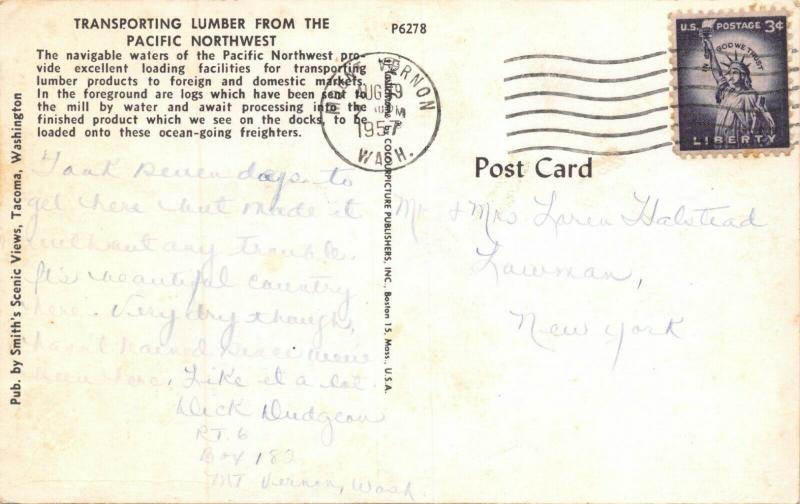 TRANSPORTING LUMBER FROM THE
PACIFIC NORTHWEST
The navigable waters of the Pacific Northwest pro-
vide excellent loading facilities for transporting
lumber products to foreign and domestic markets.
In the foreground are logs which have been sent to
the mill by water and await processing into the
finished product which we see on the docks, to be
loaded onto these ocean-going freighters.
P6278
Pub. by Smith's Scenic Views, Tacoma, Washington
by COLOURPICTURE PUBLISHERS, INC., Boston 15, Mass., U.S.A.
MOUNT VERNON
AUG 19
1957
WASH.
U.S. POSTAGE 3¢
IN GOD WE TRUST
LIBERTY
Post Card
Took seven days to
get here but made it
without any trouble.
It's beautiful country
here. Very dry though,
hasn't rained since we've
been here. Like it a lot.
Dick Dudgeon
RT. 6
Box 182
MT Vernon, Wash
Mr & Mrs Loren Halstead
Lowman,
New York